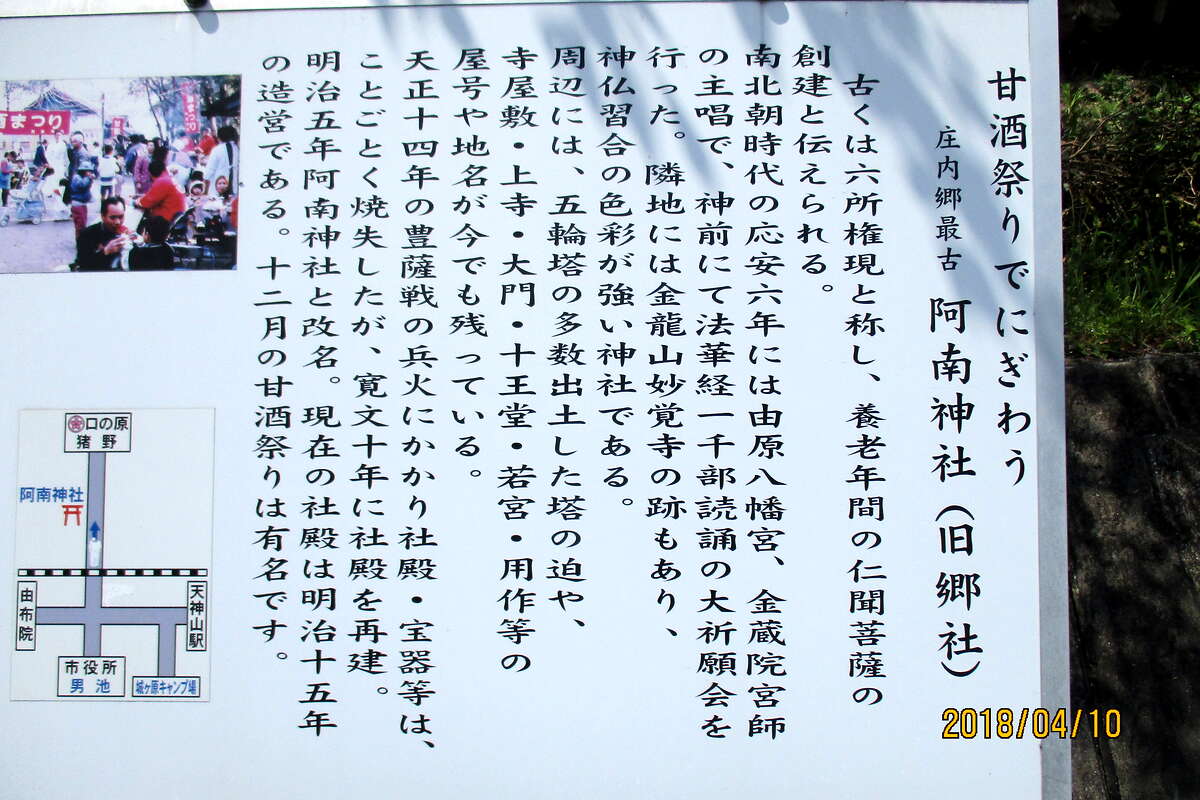 甘酒祭りでにぎわう
庄内郷最古 阿南神社(旧郷社)
古くは六所権現と称し、養老年間の仁聞菩薩の
創建と伝えられる。
南北朝時代の応安六年には由原八幡宮、金蔵院宮師
の主唱で、神前にて法華経一千部読誦の大祈願会を
行った。隣地には金龍山妙覚寺の跡もあり、
神仏習合の色彩が強い神社である。
周辺には、五輪塔の多数出土した塔の迫や、
寺屋敷・上寺・大門・十王堂・若宮・用作等の
屋号や地名が今でも残っている。
天正十四年の豊薩戦の兵火にかかり社殿・宝器等は、
ことごとく焼失したが、寛文十年に社殿を再建。
明治五年阿南神社と改名。現在の社殿は明治十五年
の造営である。十二月の甘酒祭りは有名です。
酉まつり
まつり
口の原
猪野
阿南神社
由布院
天神山駅
市役所
男池
城ヶ原キャンプ場
2018/04/10